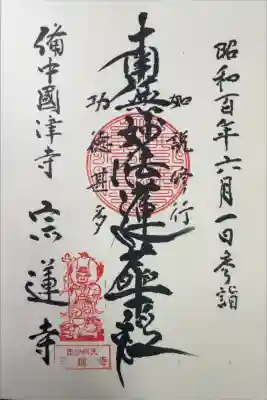 昭和百年六月一日参詣
如説修行
南無妙法蓮華経
功徳甚多
備中國津寺 宗蓮寺